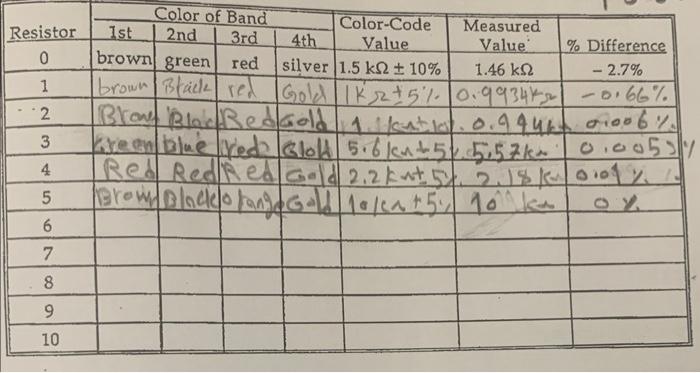 Resistor Color of Band Color-Code Value Measured Value % Difference
1st 2nd 3rd 4th
0 brown green red silver 1.5 kΩ ± 10% 1.46 kΩ – 2.7%
1 brown Black red Gold 1KΩ±5% 0.9934KΩ -0.66%
2 Brown Black Red Gold
3 Green blue red Gold 5.6kΩ±5% 5.57kΩ
4 Red Red Red Gold 2.2kΩ±5% 2.18kΩ
5 Brown Black orange Gold 10kΩ±5% 10 kΩ 0%
6
7
8
9
10